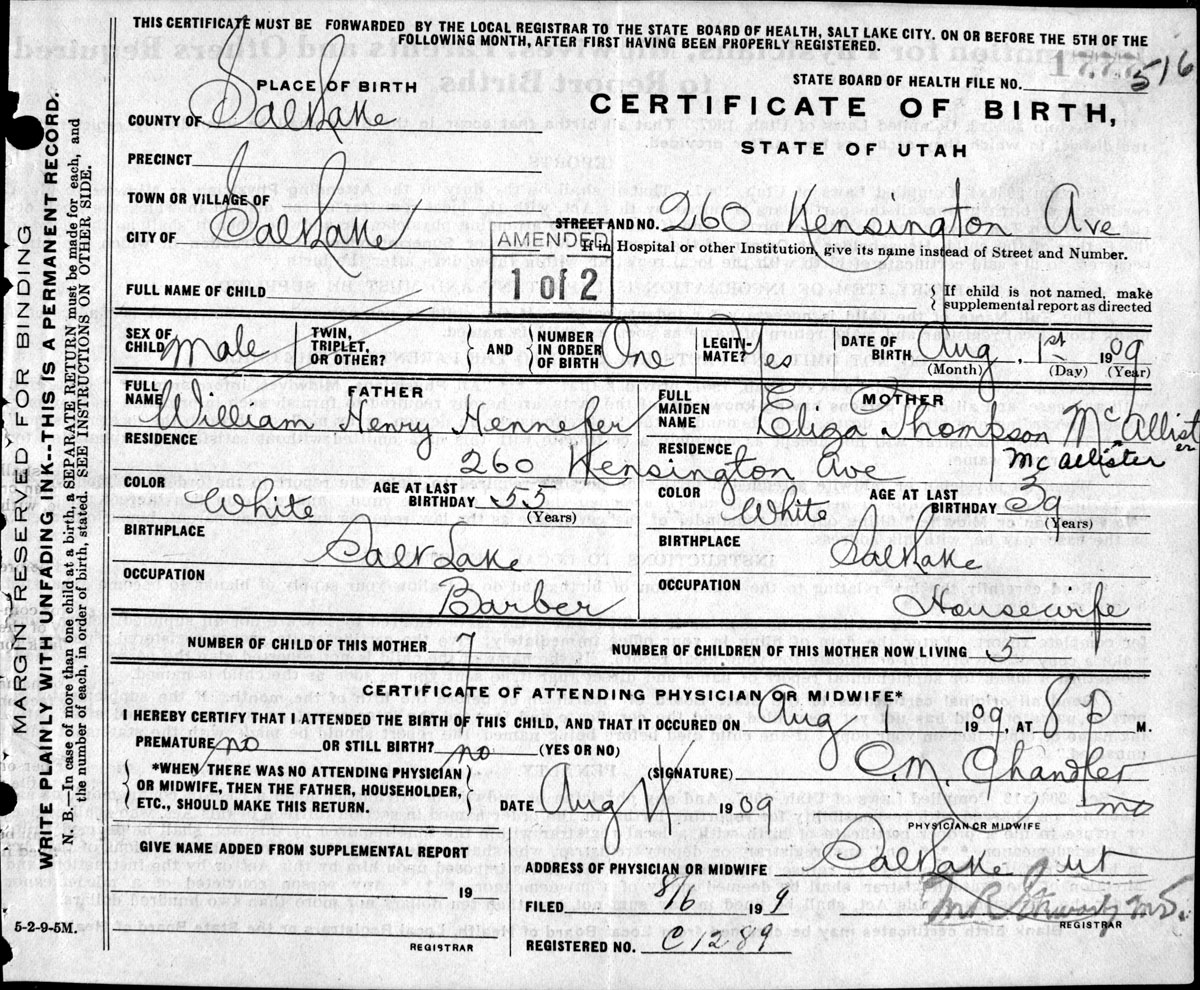 THIS CERTIFICATE MUST BE FORWARDED BY THE LOCAL REGISTRAR TO THE STATE BOARD OF HEALTH, SALT LAKE CITY, ON OR BEFORE THE 5TH OF THE
FOLLOWING MONTH, AFTER FIRST HAVING BEEN PROPERLY REGISTERED.
STATE BOARD OF HEALTH FILE NO. 516
PLACE OF BIRTH
CERTIFICATE OF BIRTH,
STATE OF UTAH
COUNTY OF Salt Lake
PRECINCT
TOWN OR VILLAGE OF
CITY OF Salt Lake
STREET AND NO. 260 Kensington Ave
If in Hospital or other Institution, give its name instead of Street and Number.
AMENDED
1 of 2
FULL NAME OF CHILD
If child is not named, make
supplemental report as directed
SEX OF CHILD Male
TWIN, TRIPLET, OR OTHER?
AND
NUMBER IN ORDER OF BIRTH One
LEGITI-MATE? Yes
DATE OF BIRTH Aug. 1st 1909
(Month) (Day) (Year)
FATHER
FULL NAME William Henry Hennefer
RESIDENCE 260 Kensington Ave
COLOR White
AGE AT LAST BIRTHDAY 55
(Years)
BIRTHPLACE Salt Lake
OCCUPATION Barber
MOTHER
FULL MAIDEN NAME Eliza Thompson McAllister
RESIDENCE McAllister
COLOR White
AGE AT LAST BIRTHDAY 39
(Years)
BIRTHPLACE Salt Lake
OCCUPATION Housewife
NUMBER OF CHILD OF THIS MOTHER 7
NUMBER OF CHILDREN OF THIS MOTHER NOW LIVING 5
CERTIFICATE OF ATTENDING PHYSICIAN OR MIDWIFE*
I HEREBY CERTIFY THAT I ATTENDED THE BIRTH OF THIS CHILD, AND THAT IT OCCURED ON Aug 1 1909, AT 8 P M.
PREMATURE no OR STILL BIRTH? no (YES OR NO)
*WHEN THERE WAS NO ATTENDING PHYSICIAN
OR MIDWIFE, THEN THE FATHER, HOUSEHOLDER,
ETC., SHOULD MAKE THIS RETURN.
(SIGNATURE) C.M. Chandler
MD
PHYSICIAN OR MIDWIFE
DATE Aug 1909
GIVE NAME ADDED FROM SUPPLEMENTAL REPORT
19
REGISTRAR
ADDRESS OF PHYSICIAN OR MIDWIFE Salt Lake Cy ut
FILED 8/6 1909
REGISTRAR
REGISTERED NO. C1289
5-2-9-5M.
MARGIN RESERVED FOR BINDING
WRITE PLAINLY WITH UNFADING INK--THIS IS A PERMANENT RECORD.
N. B.--In case of more than one child at a birth, a SEPARATE RETURN must be made for each, and
the number of each, in order of birth, stated. SEE INSTRUCTIONS ON OTHER SIDE.